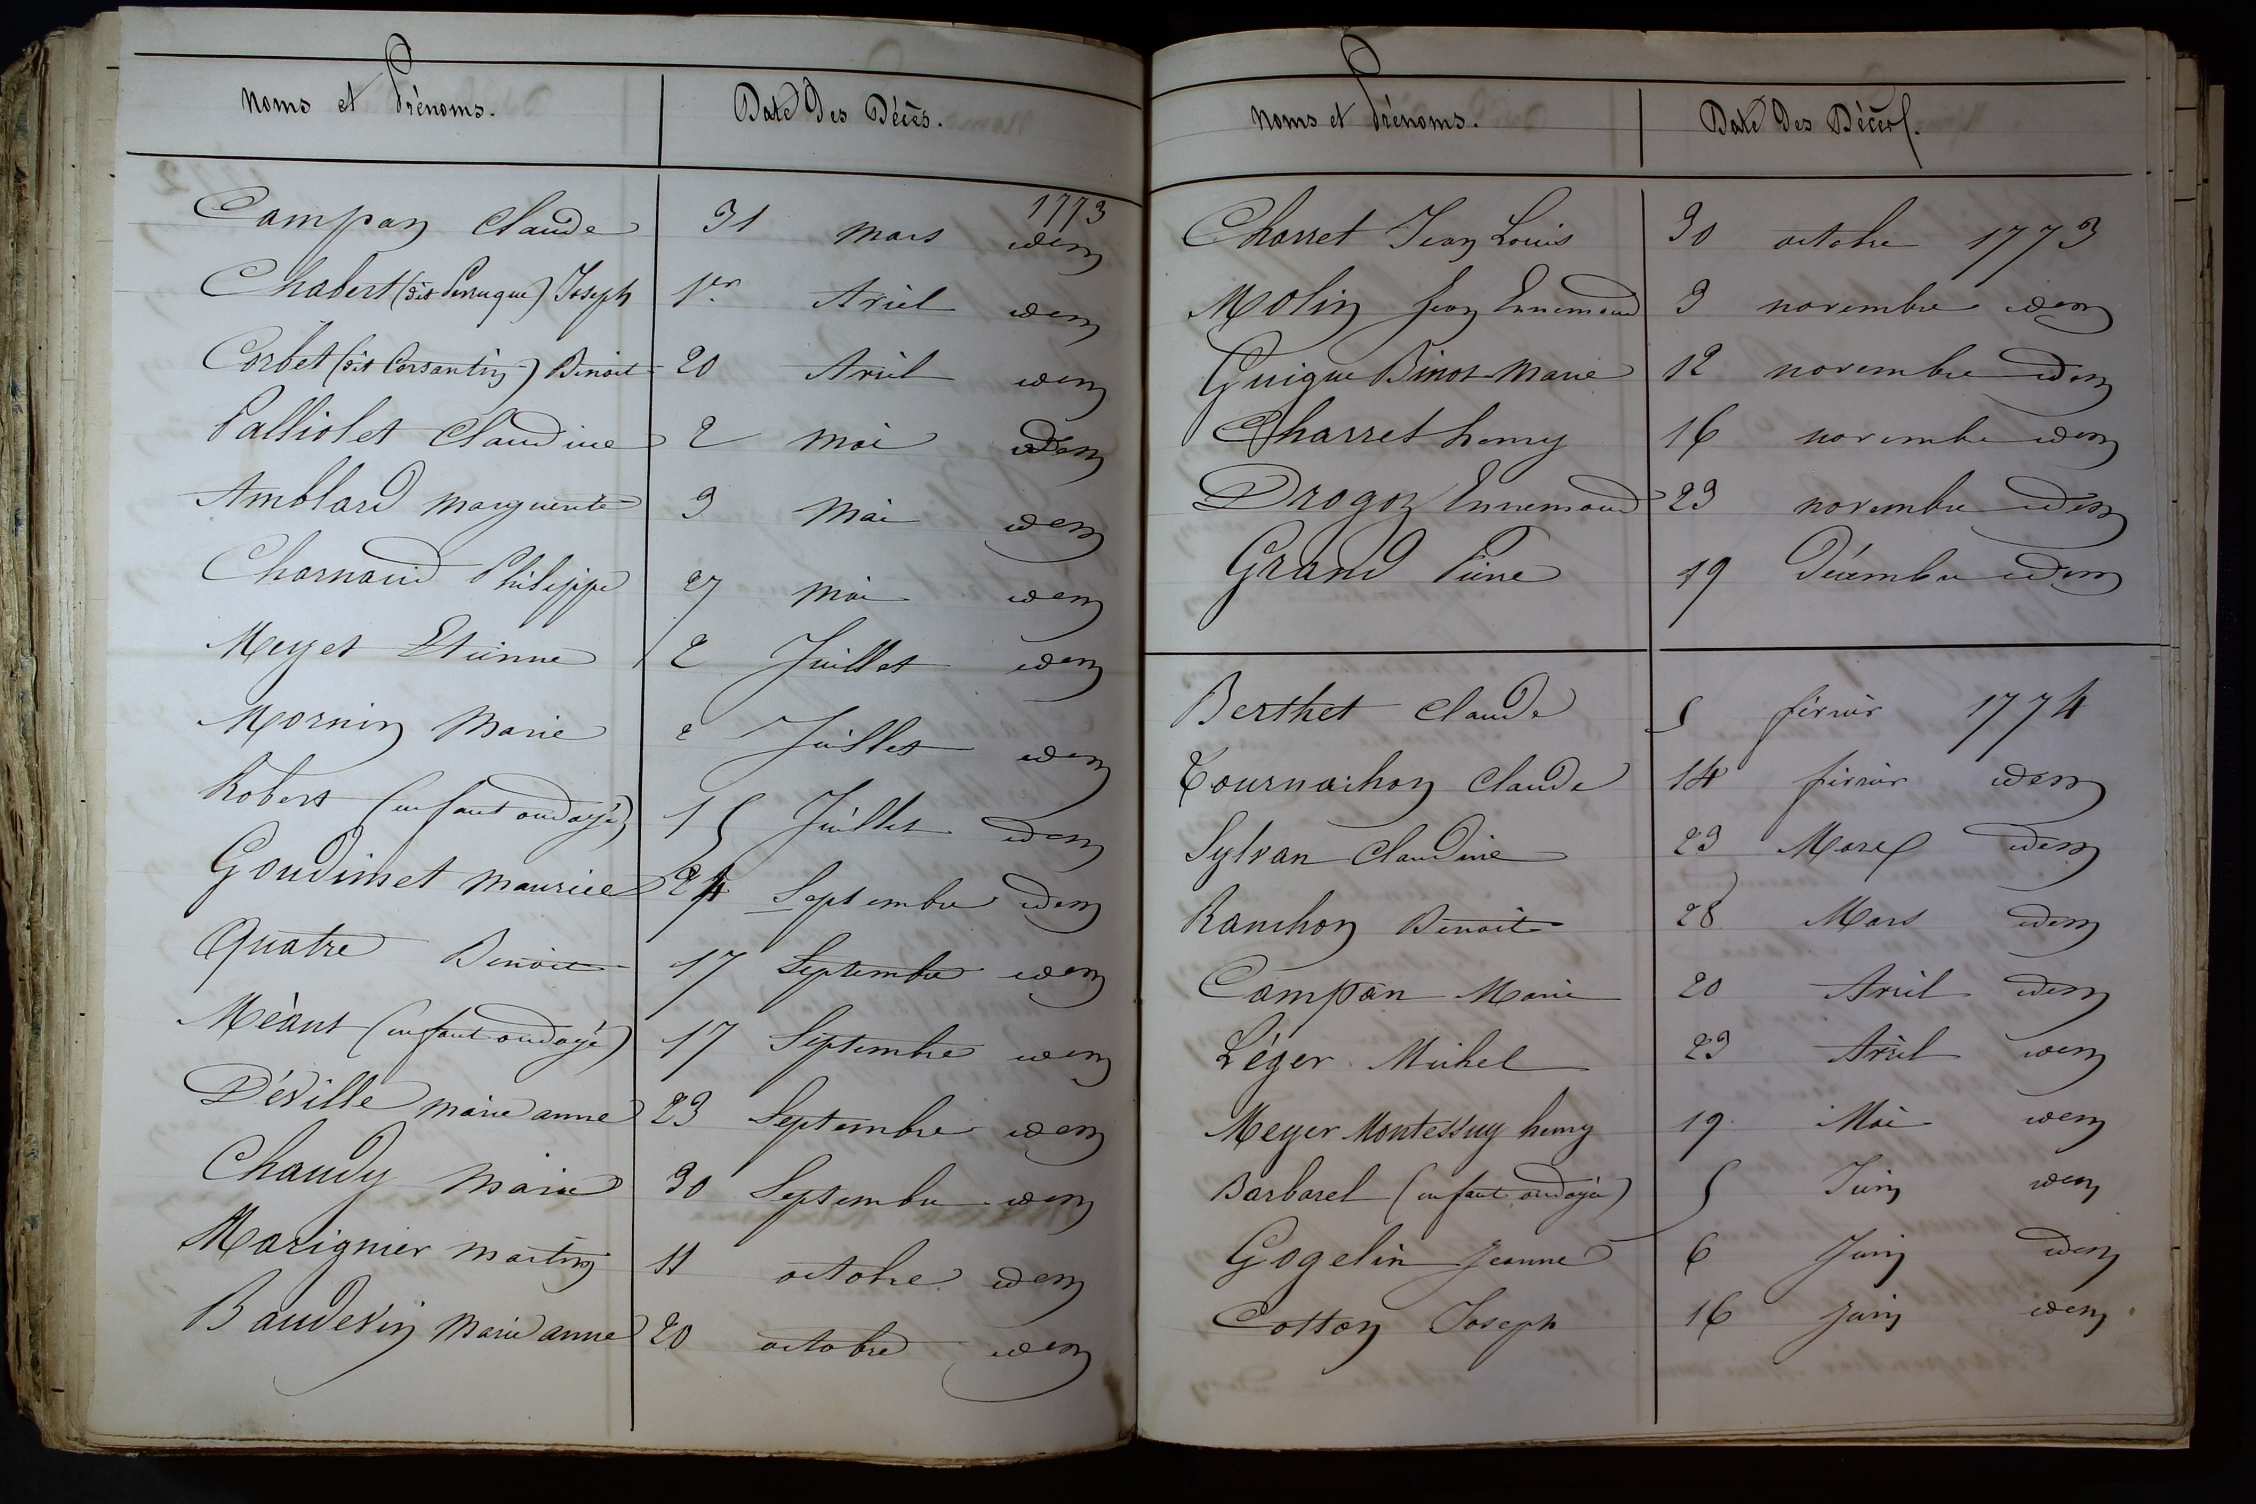 Noms et Prénoms. Date Des Décès.
1773
Campan Claude 31 mars idem
Chabert (dit Perruque) Joseph 1er Avril idem
Corbet (dit Corsantin) Benoit 20 Avril idem
Palliolet Claudine 2 mai idem
Amblard marguerite 3 mai idem
Charnaud Philippe 27 mai idem
Meyet Etienne 2 Juillet idem
Mornin Marie 2 Juillet idem
Robert (enfant ondoyé) 15 Juillet idem
Goudinet maurice Septembre idem
Quatre Benoit 17 Septembre idem
Méant (enfant ondoyé) 17 Septembre idem
Déville marie anne 23 Septembre idem
Chaudy marie 30 Septembre idem
Marignier martin 11 octobre idem
Baudevin Marie anne 20 octobre idem
Noms et Prénoms. Date Des Décès.
Charret Jean Louis 30 octobre 1773
Molin Jean Ennemond 3 novembre idem
Guigue Binot Marie 12 novembre idem
Charret henry 16 novembre idem
Drogoz Ennemond 23 novembre idem
Grand Pierre 19 Décembre idem
Berthet Claude 5 février 1774
Tournachon Claude 14 février idem
Sylvan Claudine 23 Mars idem
Ranchon Benoit 28 Mars idem
Campan Marie 20 Avril idem
Léger Michel 23 Avril idem
Meyer Montessuy henry 19 Mai idem
Barbaret (enfant ondoyé) 5 Juin idem
Gogelin Jeanne 6 Juin idem
Cotton Joseph 16 Juin idem